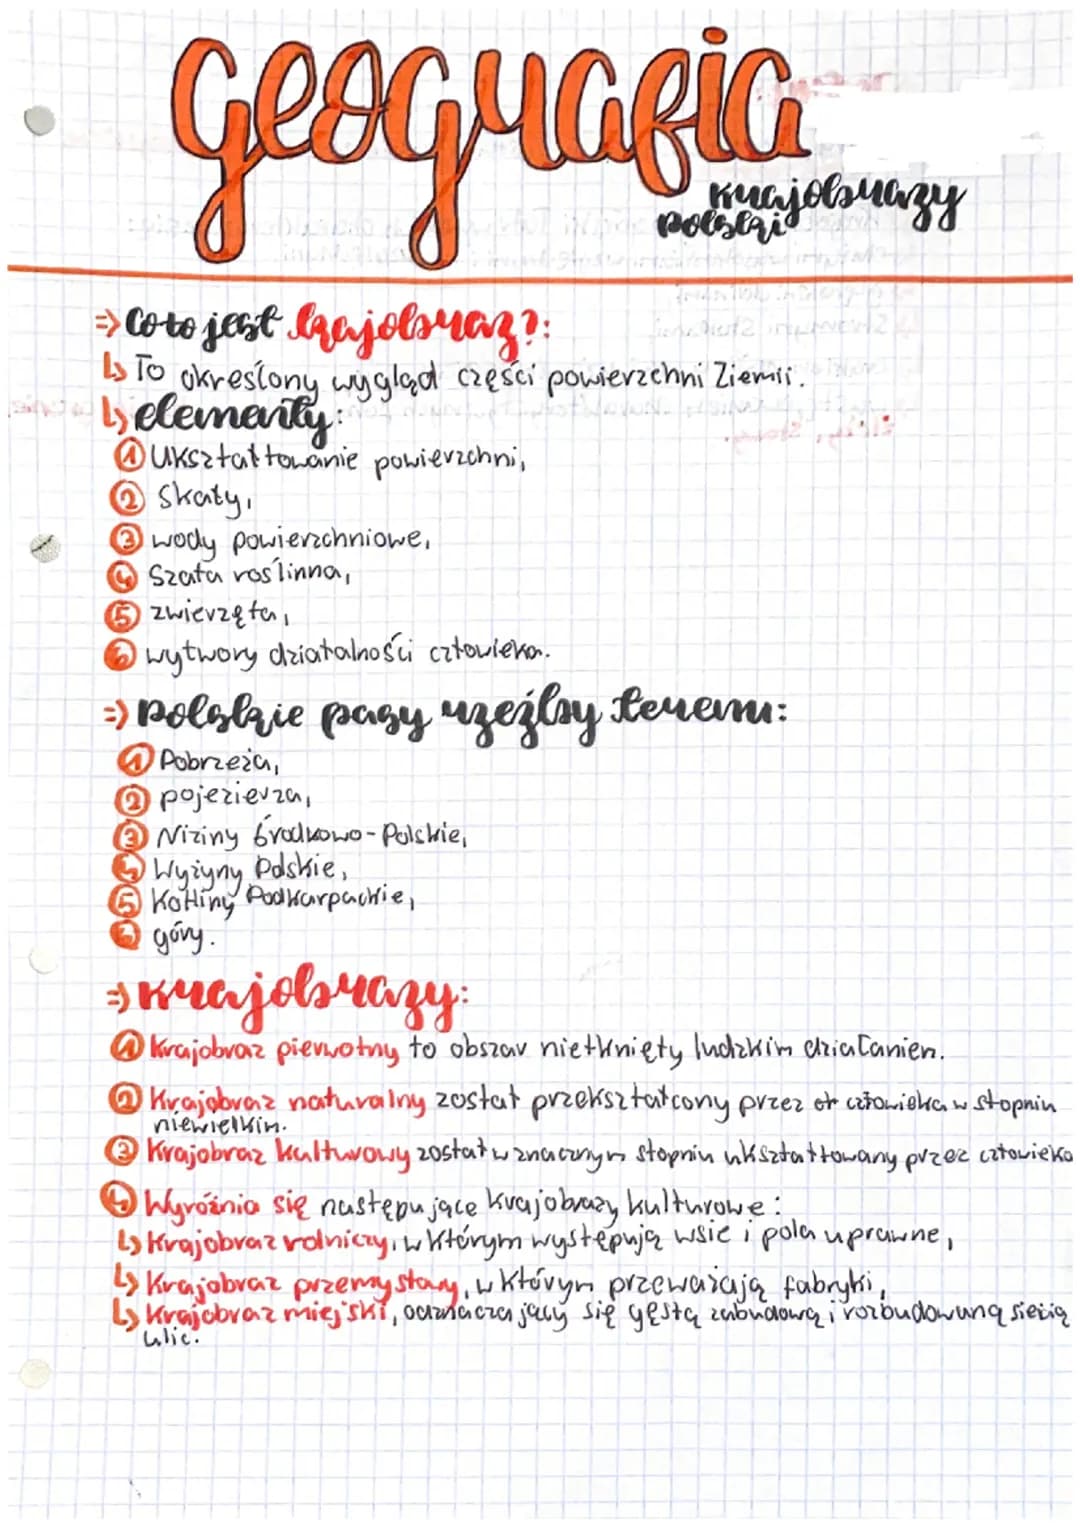 geografia
krajobrazy
Polski
=> Co to jest krajobraz?:
↳ To określony wygląd części powierzchni Ziemii.
↳ elementy:
① Ukształtowanie powierzchni,
② Skały,
③ wody powierzchniowe,
④ Szata roślinna,
⑤ zwierzęta,
⑥ wytwory działalności człowieka.
=> Polskie pasy rzeźby terenu:
① Pobrzeża,
② pojezierza,
③ Niziny Środkowo-Polskie,
④ Wyżyny Polskie,
⑤ Kotliny Podkarpackie,
⑥ góry.
=> Krajobrazy:
① Krajobraz pierwotny to obszar nietknięty ludzkim działaniem.
② Krajobraz naturalny został przekształcony przez człowieka w stopniu
niewielkim.
③ Krajobraz kulturowy został w znacznym stopniu ukształtowany przez człowieka
④ Wyróżnia się następujące krajobrazy kulturowe:
↳ Krajobraz rolniczy, w którym występują wsie i pola uprawne,
↳ Krajobraz przemysłowy, w którym przeważają fabryki,
↳ Krajobraz miejski, odznaczający się gęstą zabudową i rozbudowaną siecią
ulic.